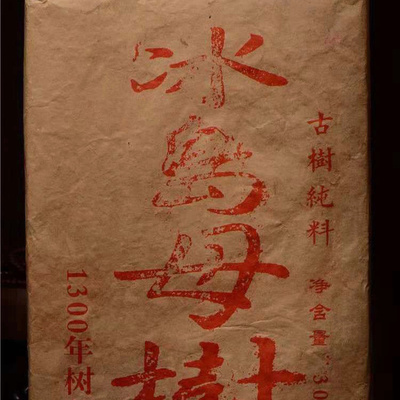 古樹純料 净含量:30
冰島母樹
1300年树